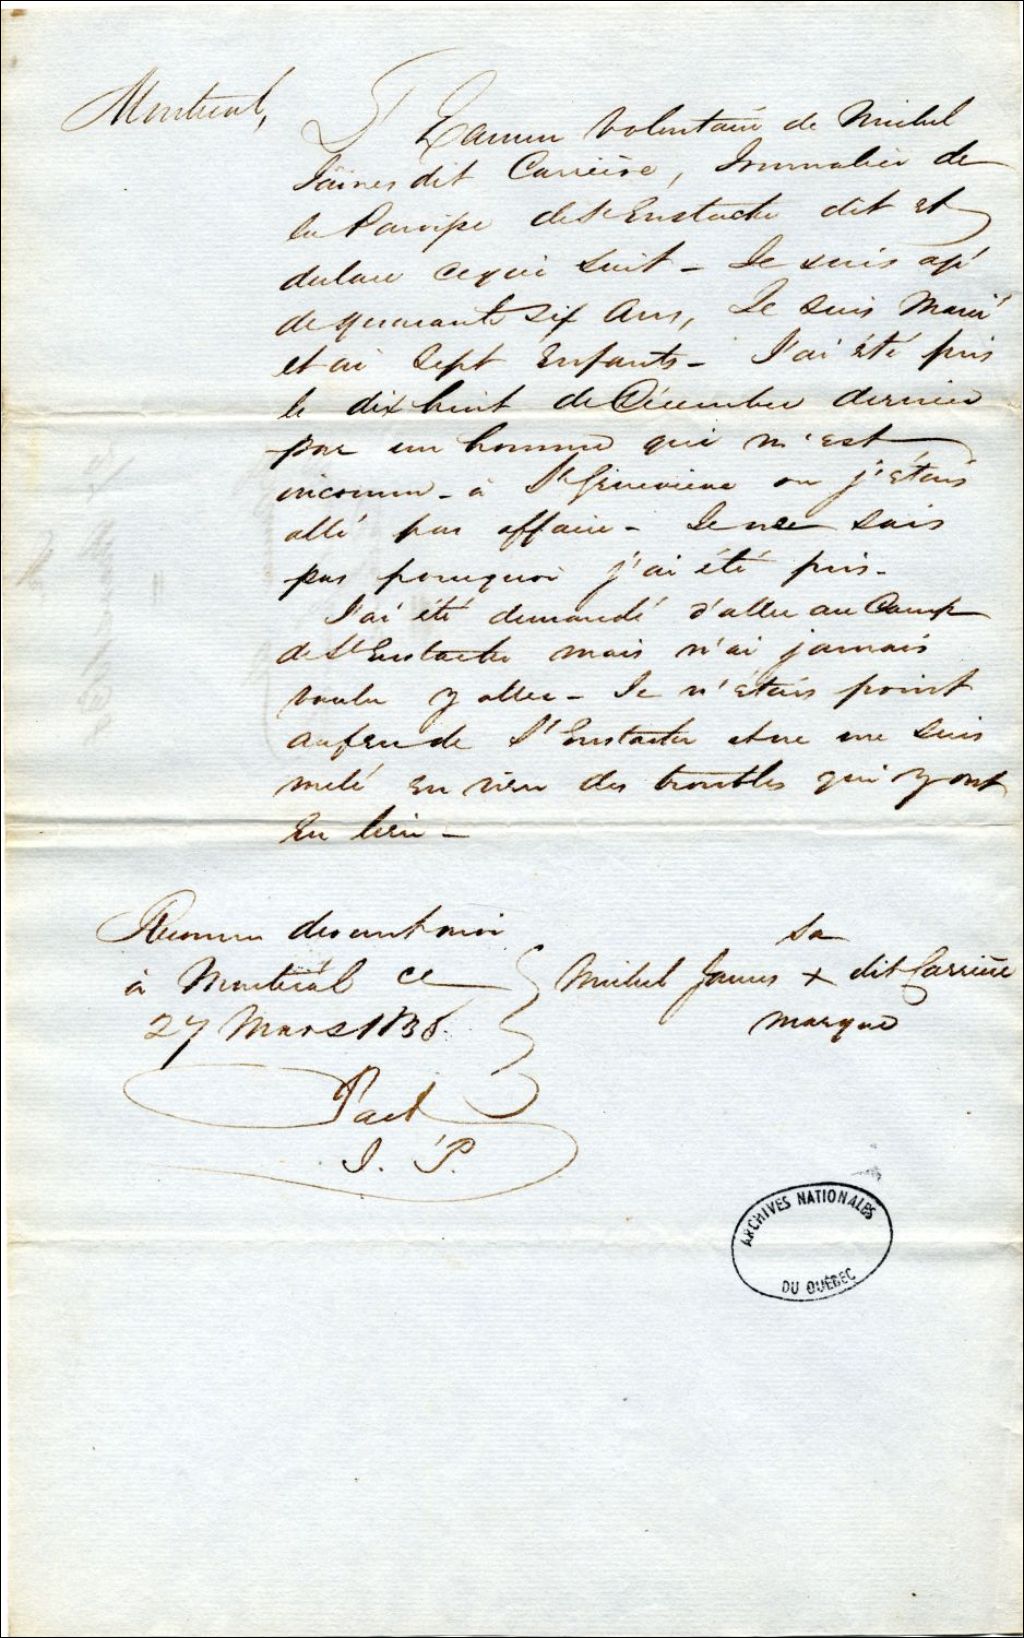 Montreal,
Examen Volontaire de Michel
James dit Carrière, Journalier de
la Paroisse de St Eustache dit et
declare ce qui suit - Je suis agé
de quarante six Ans, Je suis Marié
et ai Sept Enfants - J'ai été pris
le dix huit de Décembre dernier
par un homme qui m'est
inconnu - à Ste Genevieve ou j'étais
allé par affaire - Je ne sais
pas pourquoi j'ai été pris -
J'ai été demandé d'aller au Camp
de St Eustache mais n'ai jamais
voulu y aller - Je n'étais point
au feu de St Eustache et ne me suis
melé en rien des troubles qui y ont
Eu lieu -
Reconnu devant moi
à Montréal ce
27 Mars 1838.
sa
Michel James + dit Carrière
marque
J. P.
ARCHIVES NATIONALES
DU QUÉBEC